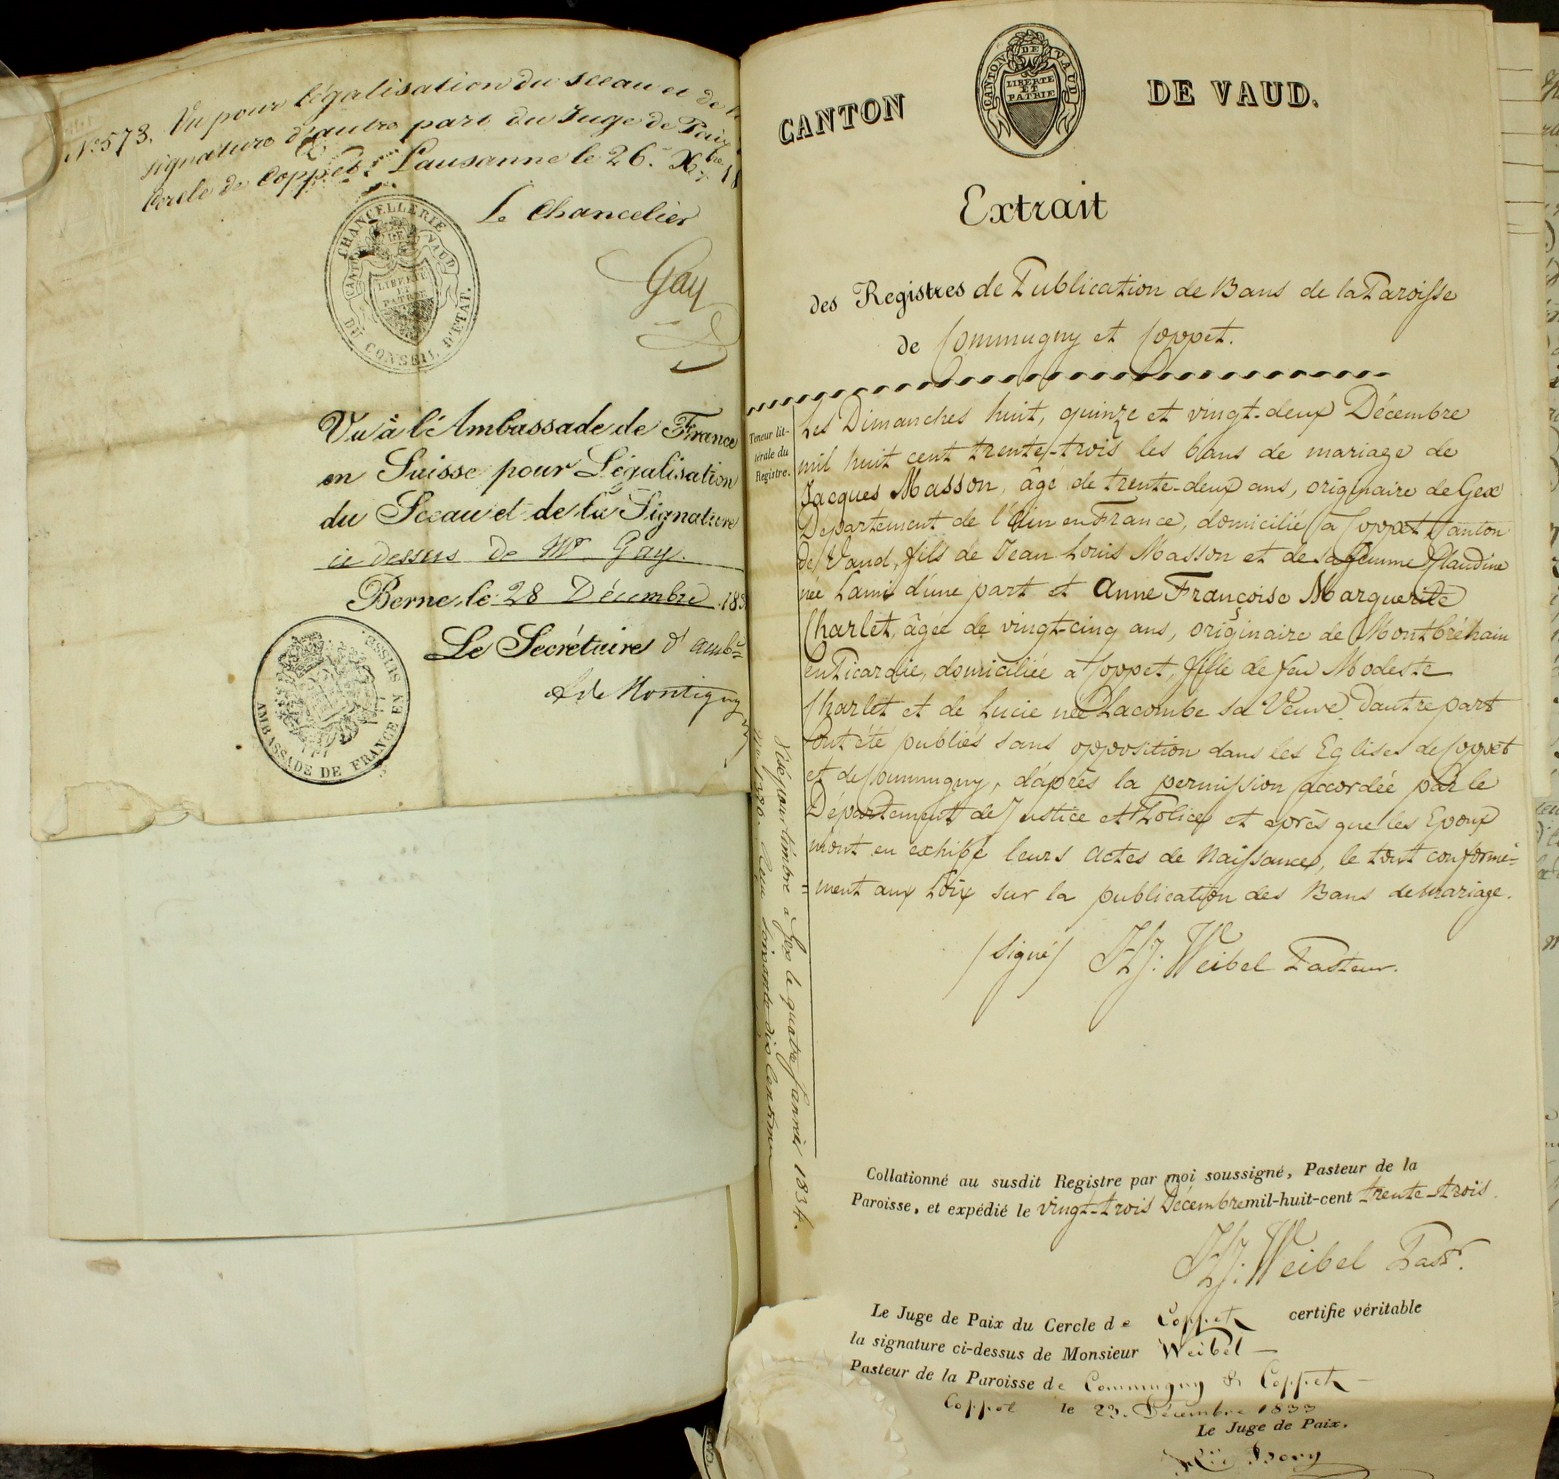 N.° 573. Vu pour légalisation du sceau et de
signature d'autre part du Juge de Paix
Cercle de Coppet. Lausanne le 26.e Xbre 18
Le Chancelier
Gay
CHANCELLERIE
DU CONSEIL D'ÉTAT.
CANTON DE VAUD
LIBERTÉ
ET
PATRIE
Vu à l'Ambassade de France
en Suisse pour Légalisation
du Sceau et de la Signature
ci dessus de Mr Gay.
Berne, le 28 Décembre 183
Le Secrétaire d'amb.
de Montigny
AMBASSADE DE FRANCE EN SUISSE
CANTON DE VAUD.
CANTON DE VAUD
LIBERTÉ
ET
PATRIE
Extrait
des Registres de Publication de Bans de la Paroisse
de Commugny et Coppet.
Teneur lit-
térale du
Registre.
Les Dimanches huit, quinze et vingt-deux Décembre
mil huit cent trente-trois les bans de mariage de
Jacques Masson, âgé de trente-deux ans, originaire de Gex
Département de l'Ain en France, domicilié à Coppet Canton
de Vaud, fils de Jean Louis Masson et de sa femme Claudine
née Lami d'une part et Anne Françoise Marguerite
Charlet, âgée de vingt-cinq ans, originaire de Montbréhain
en Picardie, domiciliée à Coppet, fille de feu Modeste
Charlet et de Lucie née Lacombe sa Veuve, d'autre part
ont été publiés sans opposition dans les Eglises de Coppet
et de Commugny, d'après la permission accordée par le
Département de Justice et Police et après que les Epoux
m'ont eu exhibé leurs actes de Naissance, le tout conformé-
ment aux Loix sur la publication des Bans de Mariage.
/Signé/ Weibel Pasteur.
Visé pour timbre à Gex le quatre Janvier 1834.
soixante dix centimes
Collationné au susdit Registre par moi soussigné, Pasteur de la
Paroisse, et expédié le vingt-trois Décembre mil-huit-cent trente-trois.
Weibel Past.
Le Juge de Paix du Cercle de Coppet certifie véritable
la signature ci-dessus de Monsieur Weibel
Pasteur de la Paroisse de Commugny & Coppet
Coppet le 23. Décembre 1833
Le Juge de Paix.